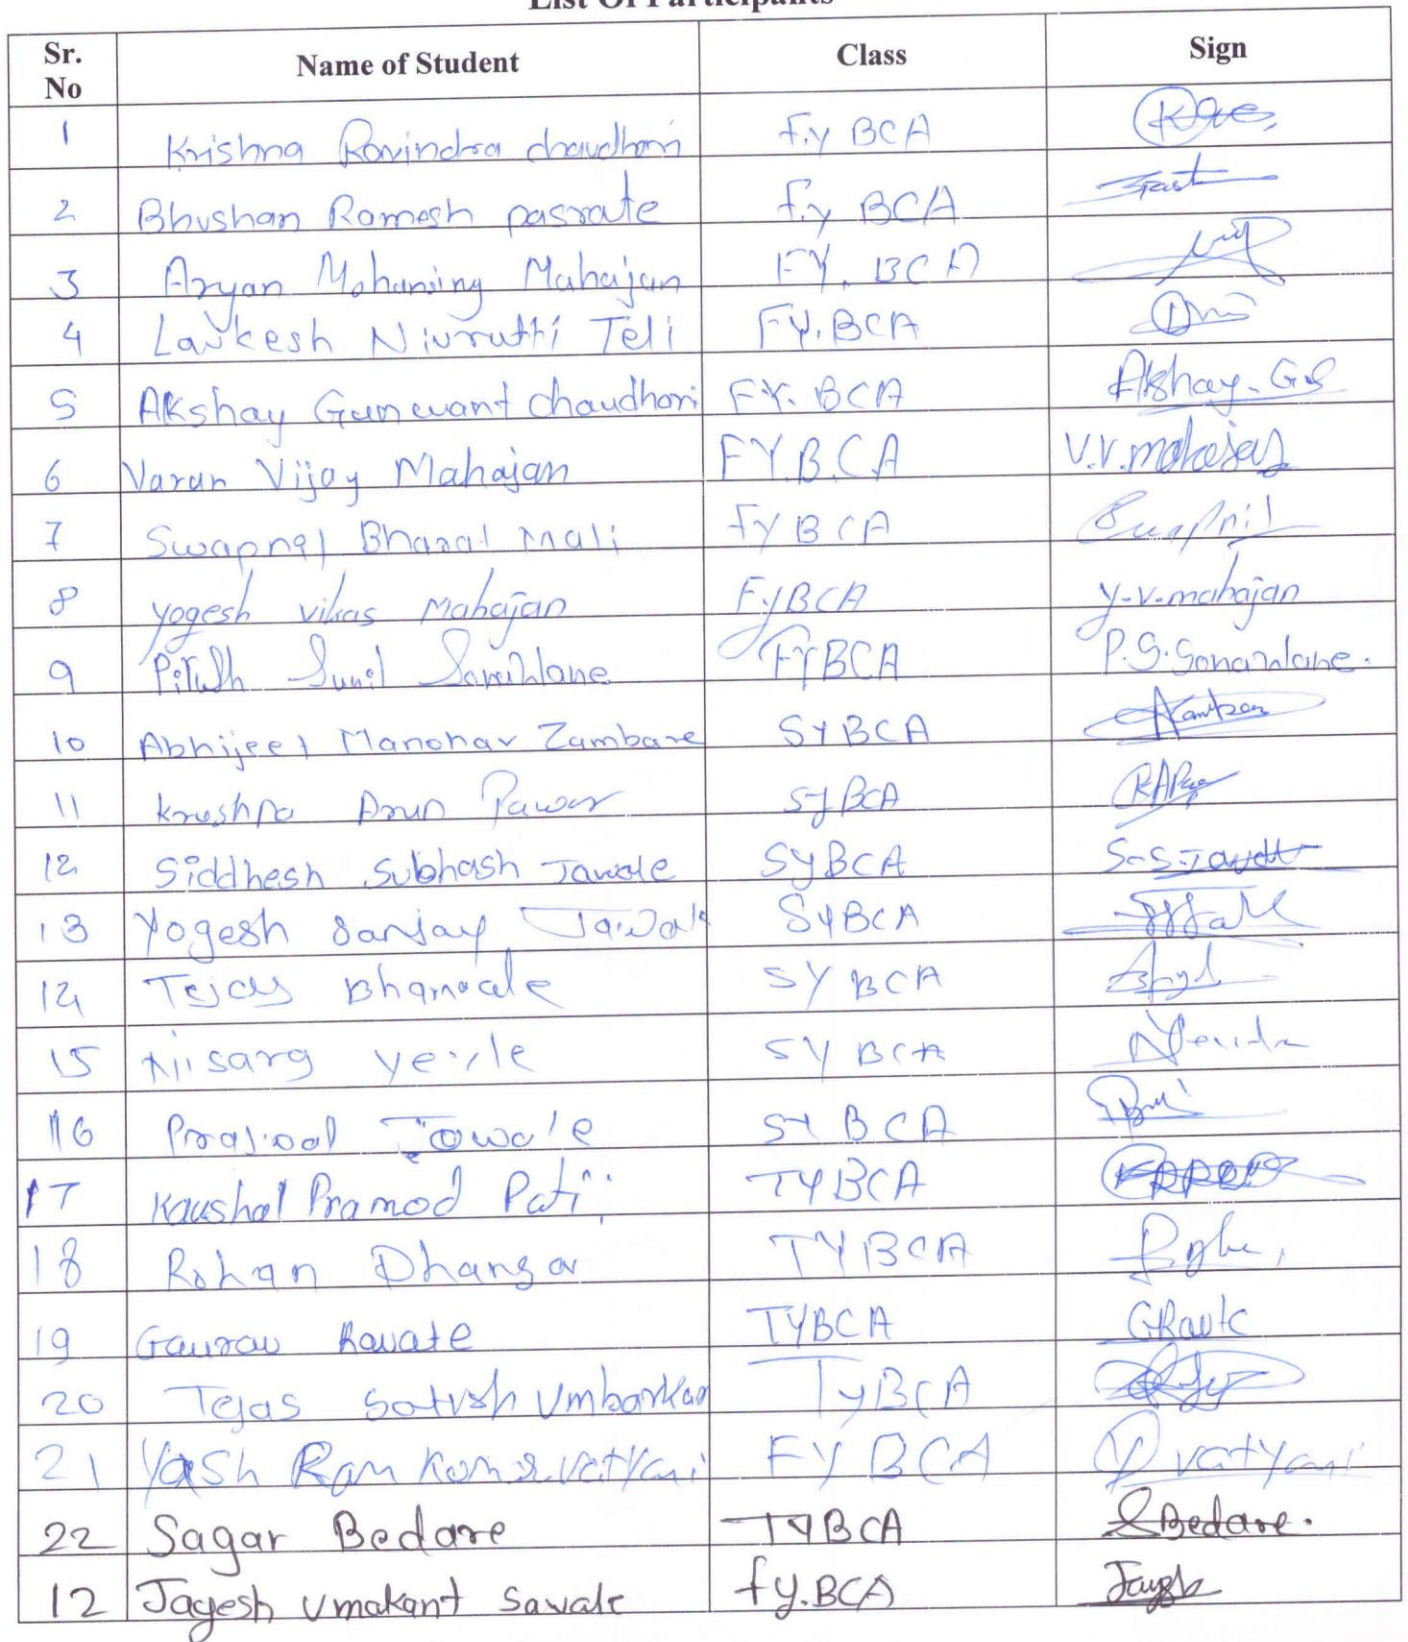 List Of Participants
Sr. No Name of Student Class Sign
1 Krishna Ravindra chaudhari F.y BCA
2 Bhushan Ramesh pasrate F.y BCA
3 Aryan Mohansing Mahajan FY. BCA
4 Lavkesh Nivrutti Teli FY.BCA
5 Akshay Gunwant chaudhari FY. BCA Akshay-GS
6 Varun Vijay Mahajan FY.B.CA V.V.mahajan
7 Swapnel Bharat mali FY BCA Swapnil
8 yogesh vikas Mahajan FyBCA y-v-mahajan
9 Sunil FYBCA P.S.Sonawane.
10 Abhijeet Manohar Zambare SYBCA
11 krushna Arun Pawar SyBCA
12 Siddhesh Subhash Jawale SyBCA S-S-Jawale
13 Yogesh Sanjay Jawale SyBCA
14 Tejas Bhamale SY BCA
15 Nisarg yevle SY BCA
16 Prajwal Jawale SY BCA
17 Kaushal Pramod Patil TYBCA
18 Rohan Dhangar TYBCA
19 Gaurav Ravate TYBCA
20 Tejas Satish Umbarkar TyBCA
21 Yash Ram FY BCA
22 Sagar Bedare TYBCA SBedare.
12 Jagesh Umakant Savale fy.BCA